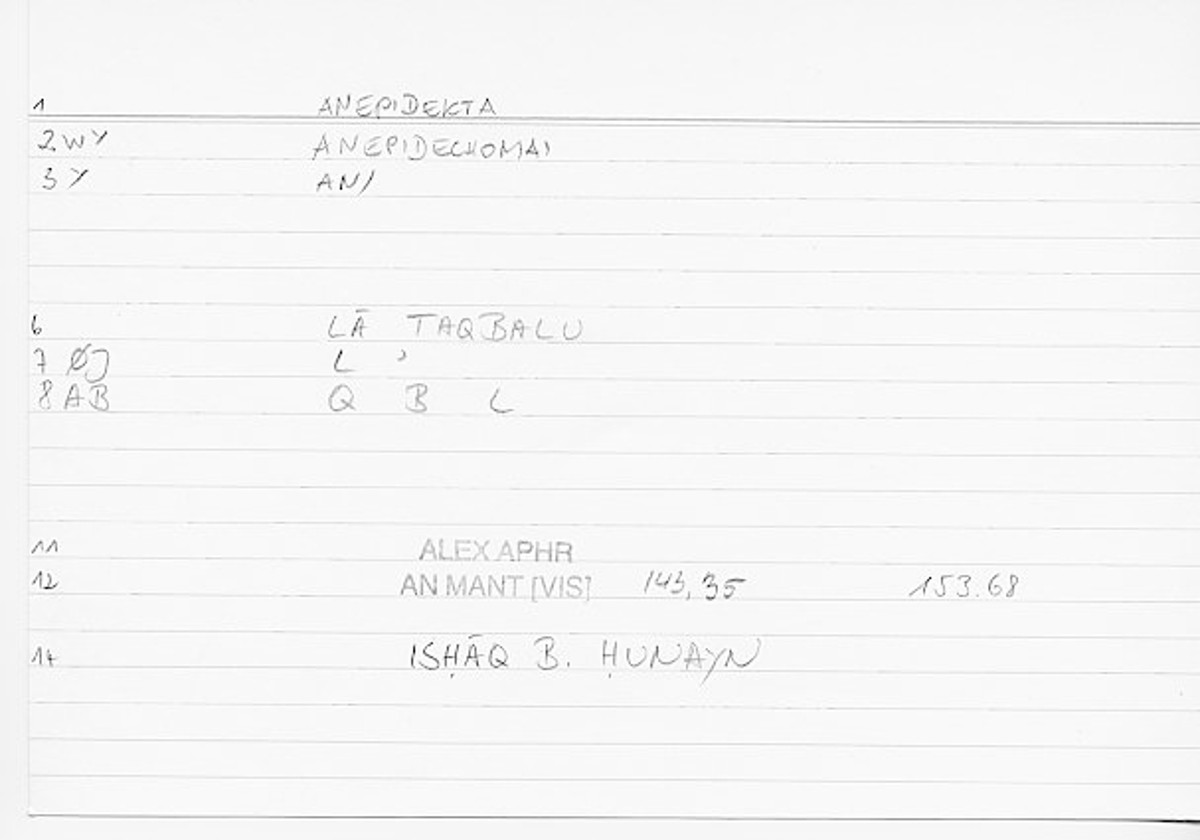 1 ANEPIDEKTA
2 WY ANEPIDECHOMAI
3 Y AN/
6 LĀ TAQBALU
7 ØJ L ʾ
8 AB Q B L
11 ALEX APHR
12 AN MANT [VIS] 143,35 153.68
14 ISḤĀQ B. ḤUNAYN